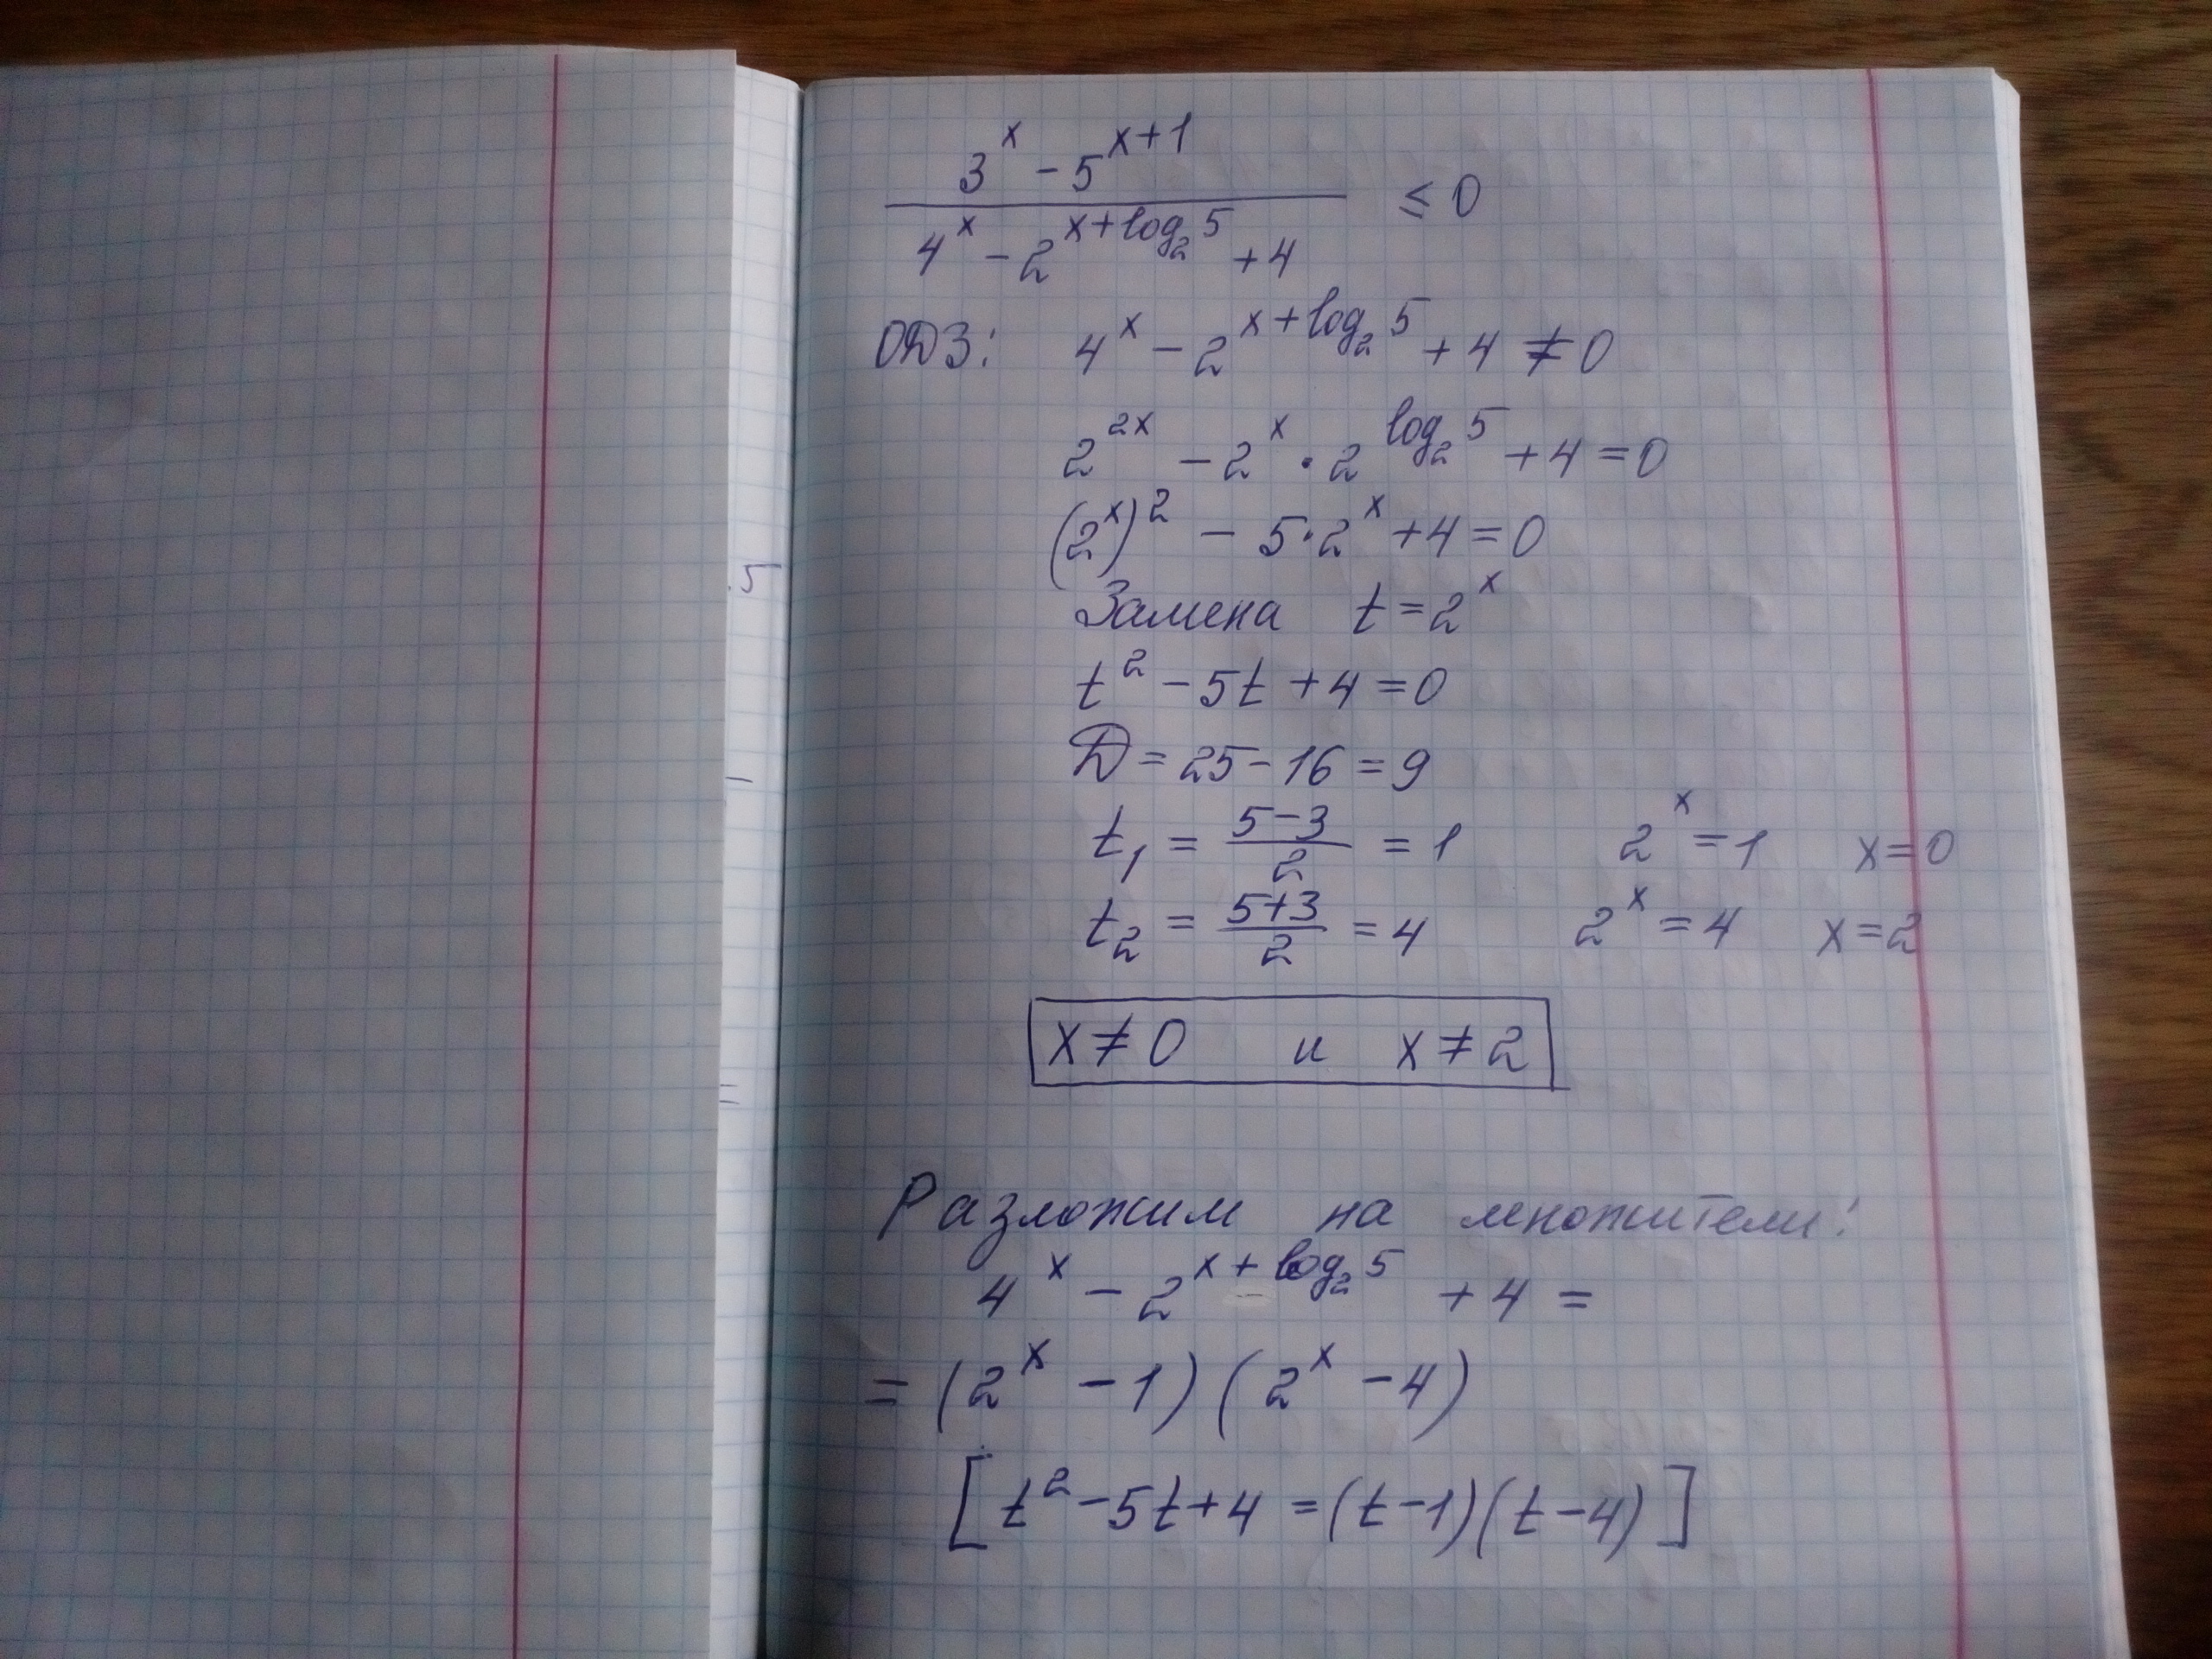 3^x - 5^(x+1)
4^x - 2^(x+log₂5) + 4 ≤ 0
ОДЗ: 4^x - 2^(x+log₂5) + 4 ≠ 0
2^(2x) - 2^x · 2^(log₂5) + 4 = 0
(2^x)² - 5·2^x + 4 = 0
Замена t = 2^x
t² - 5t + 4 = 0
D = 25 - 16 = 9
t₁ = (5-3)/2 = 1 2^x = 1 x = 0
t₂ = (5+3)/2 = 4 2^x = 4 x = 2
x ≠ 0 и x ≠ 2
Разложим на множители:
4^x - 2^(x+log₂5) + 4 =
= (2^x - 1)(2^x - 4)
[t² - 5t + 4 = (t-1)(t-4)]